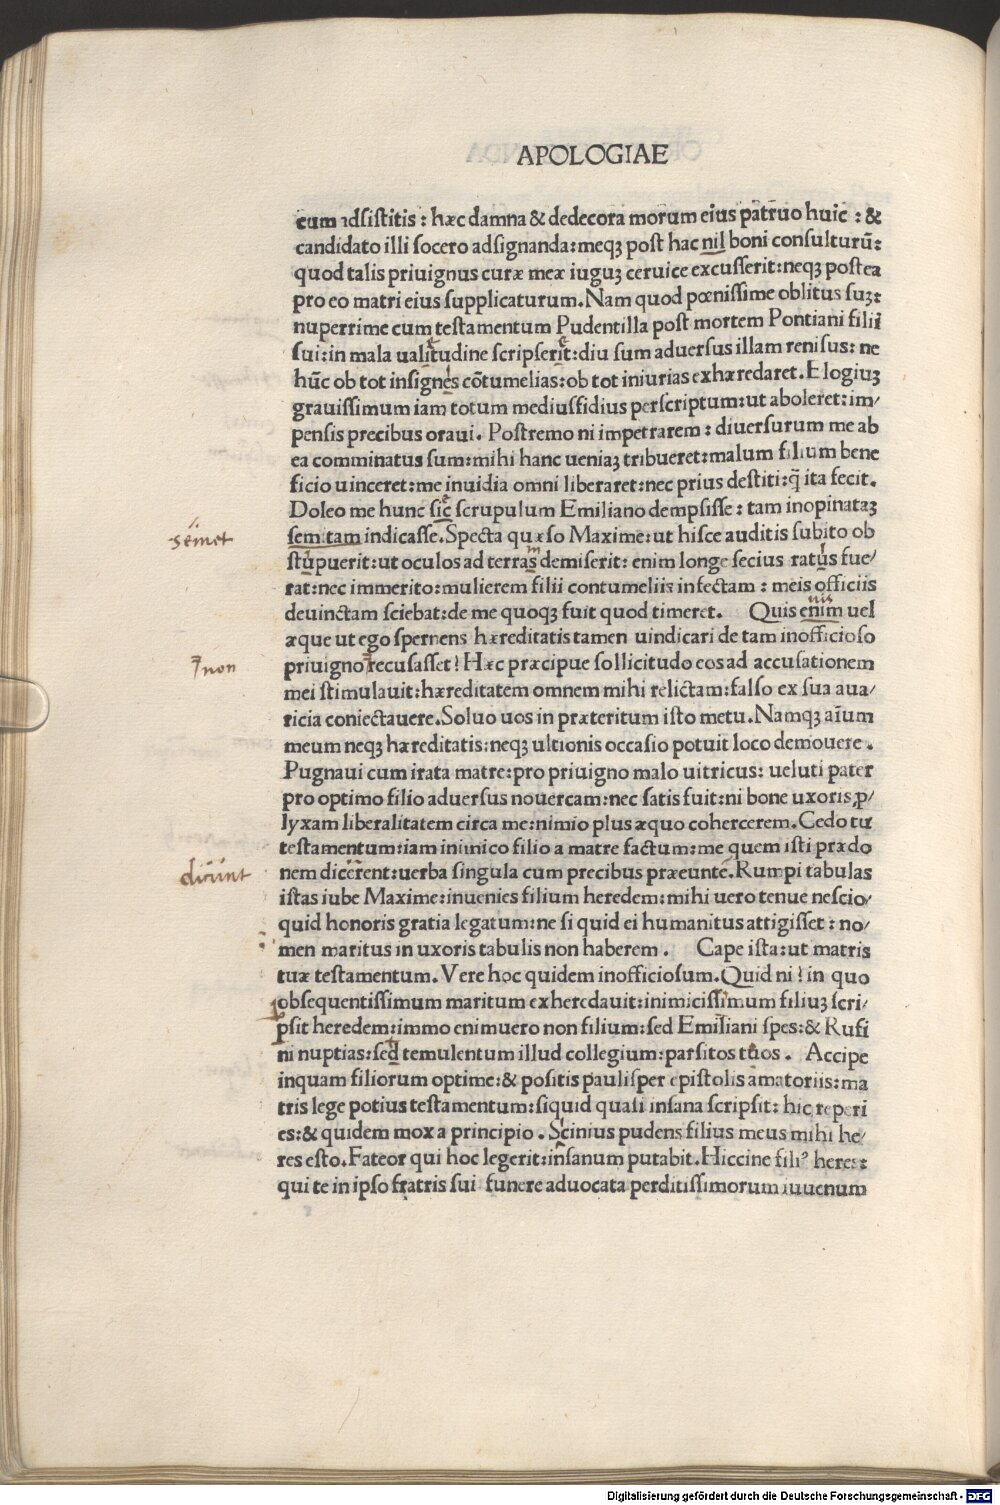 APOLOGIAE
cum adsistitis : hæc damna & dedecora morum eius patruo huic : &
candidato illi socero adsignanda: meqꝫ post hac nil boni consulturũ:
quod talis priuignus curæ meæ iuguꝫ ceruice excusserit: neqꝫ postea
pro eo matri eius supplicaturum. Nam quod pœnissime oblitus suꝫ:
nuperrime cum testamentum Pudentilla post mortem Pontiani filii
sui: in mala ualitudine scripserit: diu sum aduersus illam renisus: ne
hũc ob tot insignes cõtumelias: ob tot iniurias exhæredaret. Elogiuꝫ
grauissimum iam totum mediusfidius perscriptum: ut aboleret: im/
pensis precibus oraui. Postremo ni impetrarem : diuersurum me ab
ea comminatus sum: mihi hanc ueniaꝫ tribueret: malum filium bene
ficio uinceret: me inuidia omni liberaret: nec prius destiti: q̃ ita fecit.
Doleo me hunc sic scrupulum Emiliano dempsisse : tam inopinataꝫ
semitam indicasse. Specta quæso Maxime: ut hisce auditis subito ob
semet
stupuerit: ut oculos ad terras demiserit: enim longe secius ratus fue/
rat: nec immerito: mulierem filii contumeliis infectam : meis officiis
deuinctam sciebat: de me quoqꝫ fuit quod timeret. Quis enim uel
æque ut ego spernens hæreditatis tamen uindicari de tam inofficioso
priuigno recusasset? Hæc præcipue sollicitudo eos ad accusationem
non
mei stimulauit: hæreditatem omnem mihi relictam: falso ex sua aua/
ricia coniectauere. Soluo uos in præteritum isto metu. Namqꝫ aĩum
meum neqꝫ hæreditatis: neqꝫ ultionis occasio potuit loco demouere .
Pugnaui cum irata matre: pro priuigno malo uitricus: ueluti pater
pro optimo filio aduersus nouercam: nec satis fuit: ni bone uxoris ꝓ/
lyxam liberalitatem circa me: nimio plus æquo cohercerem. Cedo tu
testamentum: iam inimico filio a matre factum: me quem isti prædo
nem dicerent: uerba singula cum precibus præeunte. Rumpi tabulas
dicunt
istas iube Maxime: inuenies filium heredem: mihi uero tenue nescio/
quid honoris gratia legatum: ne si quid ei humanitus attigisset : no/
men maritus in uxoris tabulis non haberem . Cape ista: ut matris
tuæ testamentum. Vere hoc quidem inofficiosum. Quid ni? in quo
obsequentissimum maritum exheredauit: inimicissimum filiuꝫ scri/
psit heredem: immo enimuero non filium: sed Emiliani spes: & Rufi
ni nuptias: sed temulentum illud collegium: parsitos tuos . Accipe
inquam filiorum optime: & positis paulisper epistolis amatoriis: ma
tris lege potius testamentum: siquid quasi insana scripsit: hic reperi
es: & quidem mox a principio . Scinius pudens filius meus mihi he/
res esto. Fateor qui hoc legerit: insanum putabit. Hiccine filiꝰ heres:
qui te in ipso fratris sui funere aduocata perditissimorum iuuenum
Digitalisierung gefördert durch die Deutsche Forschungsgemeinschaft - DFG